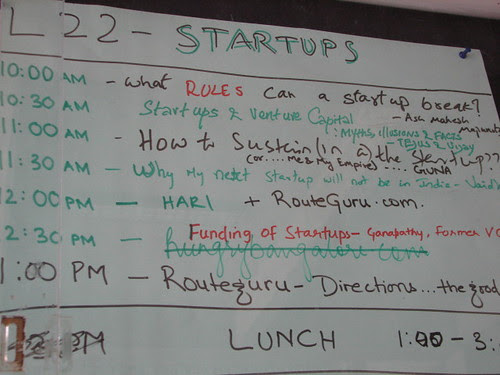 L 22 - STARTUPS
10:00 AM - what RULES can a startup break?
10:30 AM Startups & Venture Capital - Ask Mahesh
: Myths, illusions & FACTS
- TEJUS & Vijay
11:00 AM - How to Sustain (in a) the Startup??
(or.... me & My Empire) .... GUNA
11:30 AM - Why My next startup will not be in India -
12:00 PM - HARI + RouteGuru.com.
Funding of Startups - Ganapathy, Former VC
2:30 PM - hungrybangalore.com
1:00 PM - Routeguru - Directions...the good
PM LUNCH 1:00 - 3: